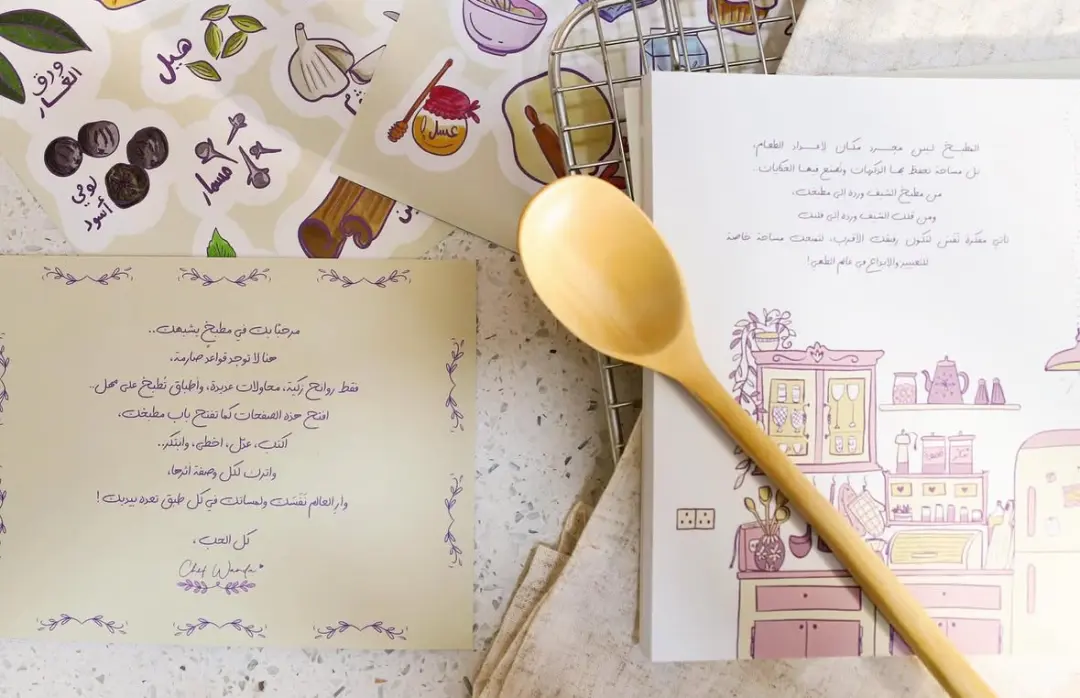 ورق
الغار
هيل
عسل
لومي
أسود
مسمار
مرحبًا بك في مطبخ يشبهك..
هنا لا توجد قواعد صارمة،
فقط روائح زكية، محاولات عديدة، وأطباق تُطبخ على مهل..
افتح هذه الصفحات كما تفتح باب مطبخك،
اكتب، عدّل، اخطئ، وابتكر..
واترك لكل وصفة أثرها،
وأرِ العالم نَفَسَك ولمساتك في كل طبق تعده بيديك!
كل الحب،
Chef Warda
المطبخ ليس مجرد مكان لإعداد الطعام،
بل مساحة نحفظ بها الذكريات ونصنع فيها الحكايات..
من مطبخ الشيف وردة إلى مطبخك،
ومن قلب الشيف وردة إلى قلبك
تأتي مفكرة نَفَس لتكون رفيقك الأقرب، لتمنحك مساحة خاصة
للتعبير والإبداع في عالم الطهي!